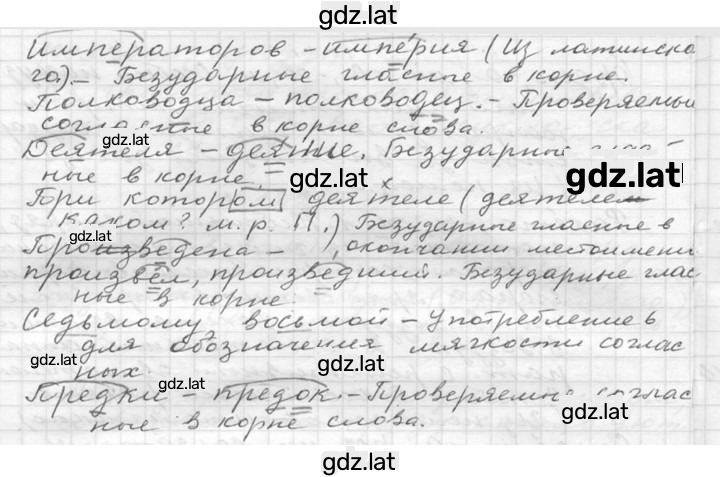 gdz.lat
Императоров – импéрия (Из латинско
го). – Безударные гласные в корне.
Полководца – полководец. – Проверяемы
согласные в корне слова.
gdz.lat
Деятеля – деяние. Безударн
ные в корне.
gdz.lat
gdz.lat
При котором деятеле (деятеле
каком? м.р. П.) Безударные гласные в
gdz.lat
Произведена – , окончании местоимени
произвёл, произведший. Безударные глас
ные в корне
Седьмому, восьмой – Употребление ь
для обозначения мягкости соглас
ных.
gdz.lat
gdz.lat
Предки – предок. – Проверяемы соглас
ные в корне слова.
gdz.lat
gdz.lat